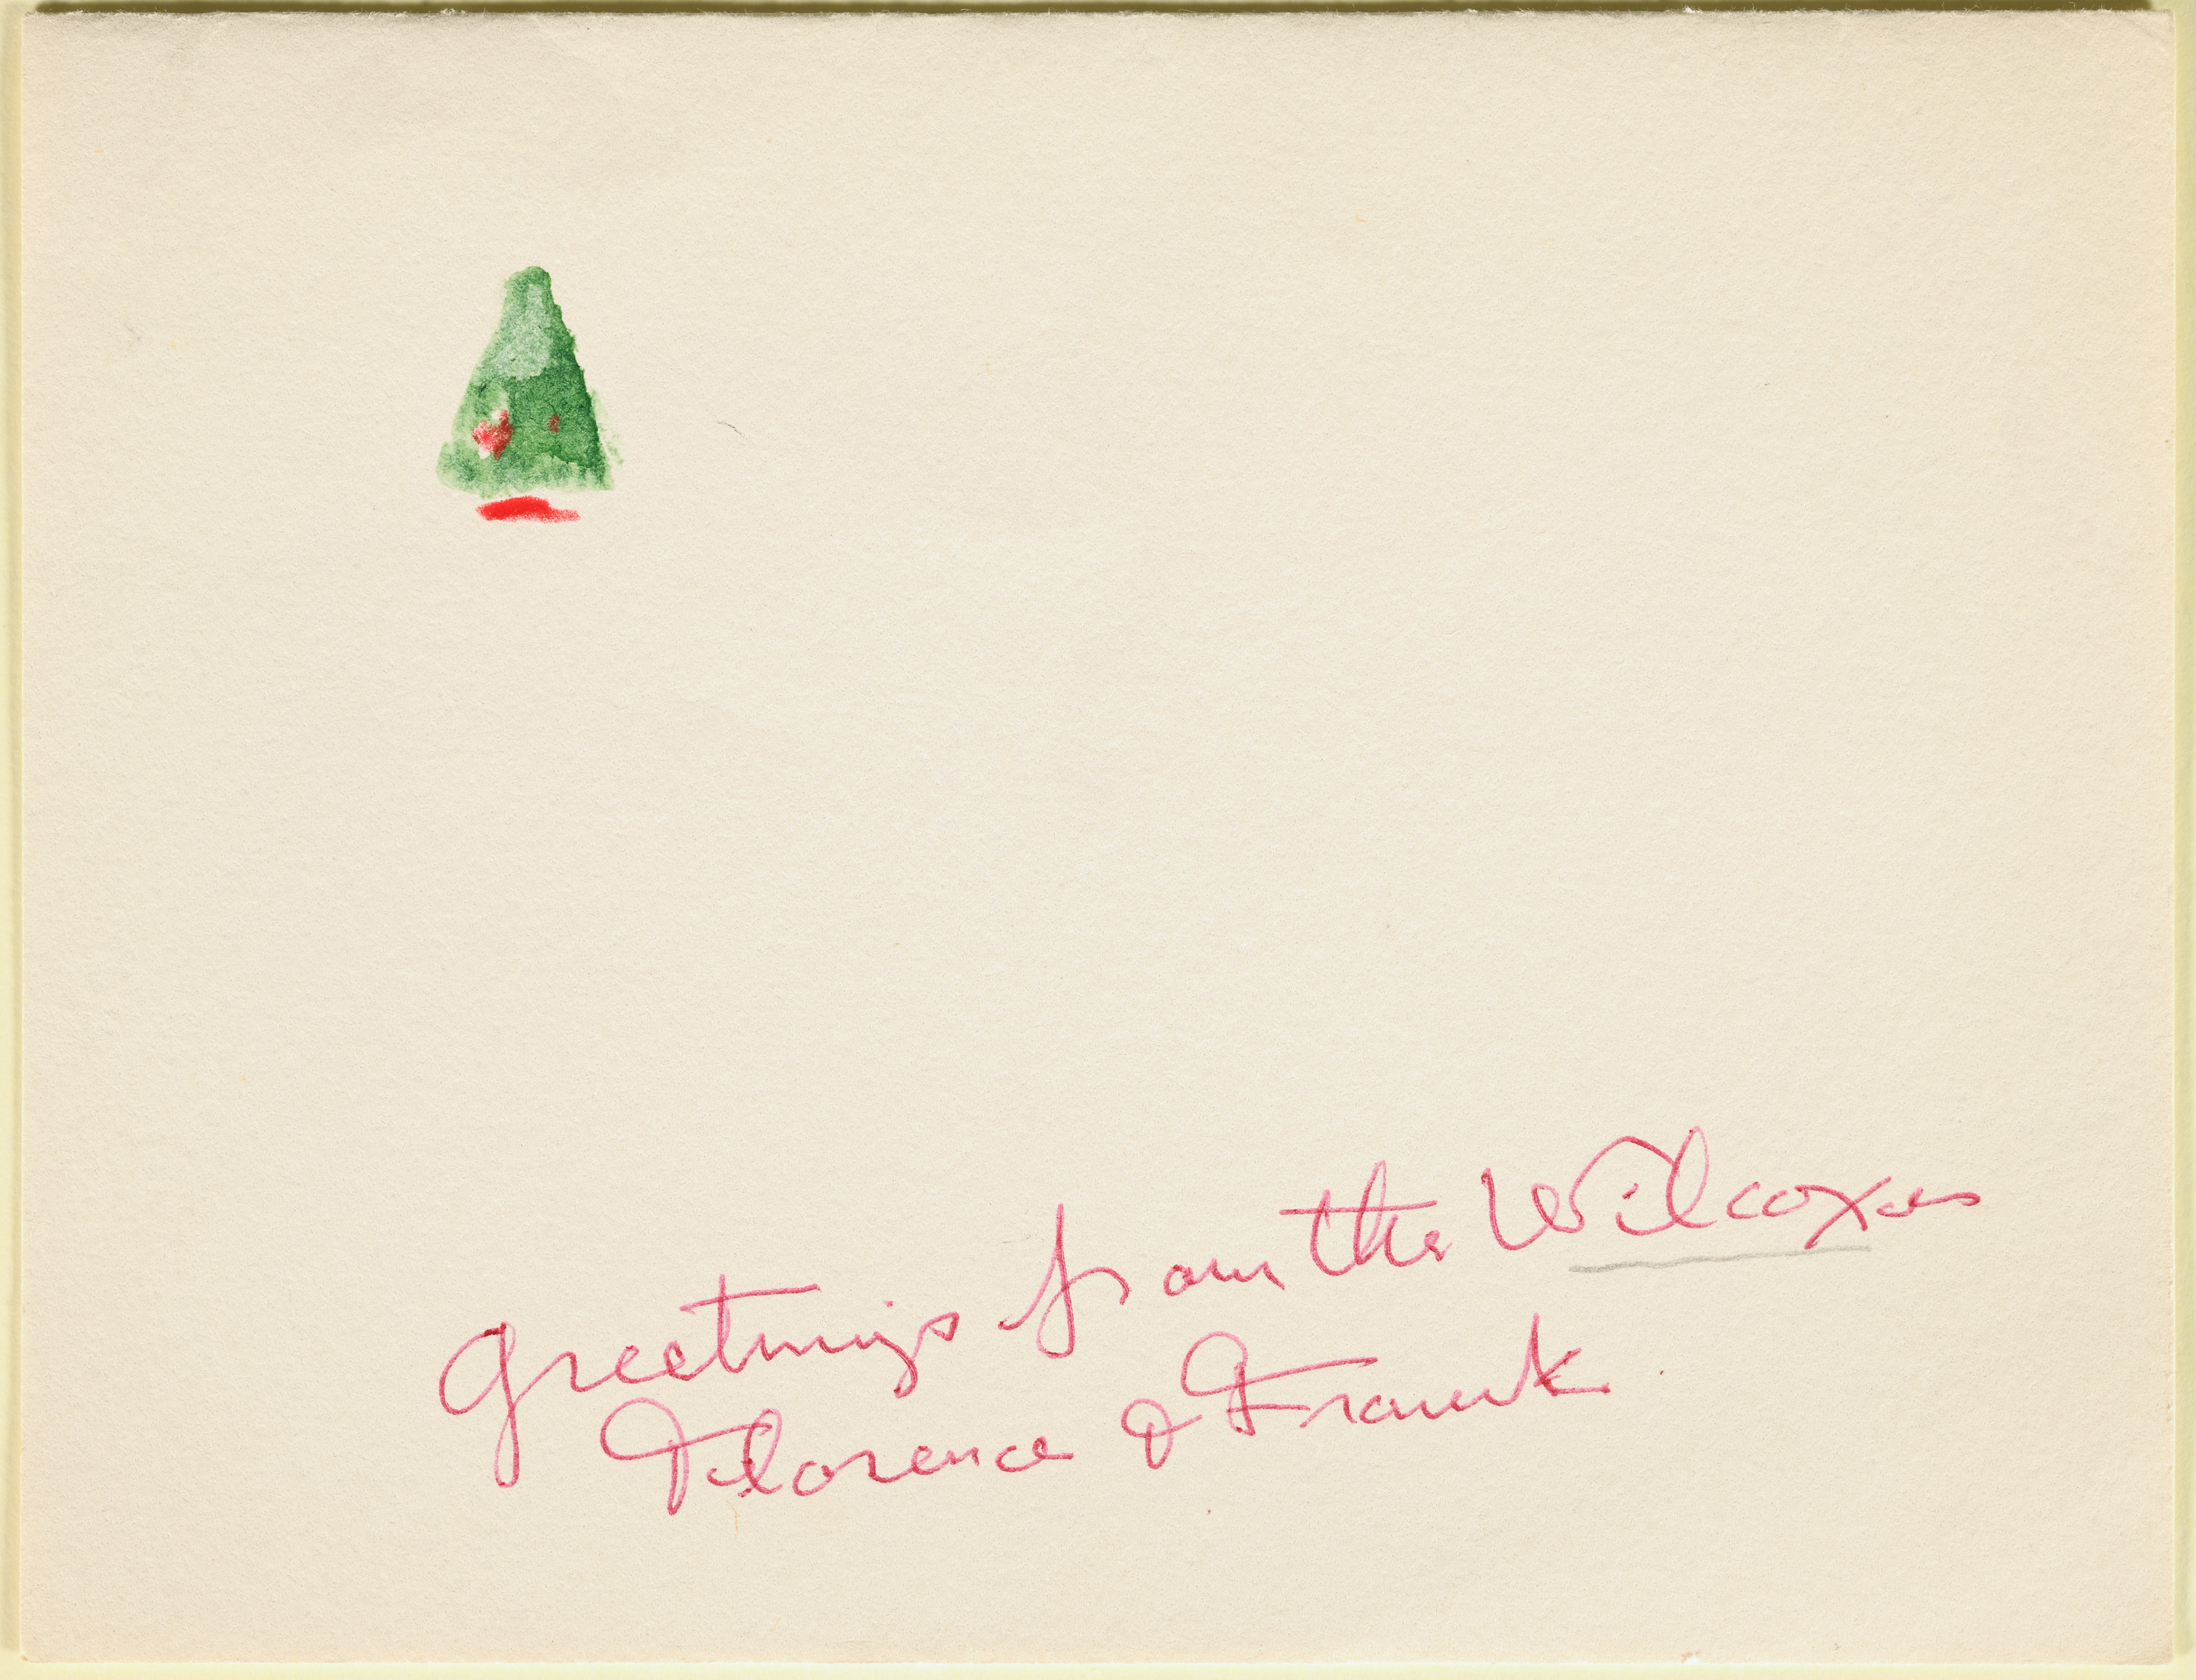 Greetings from the Wilcoxes
Florence & Frank